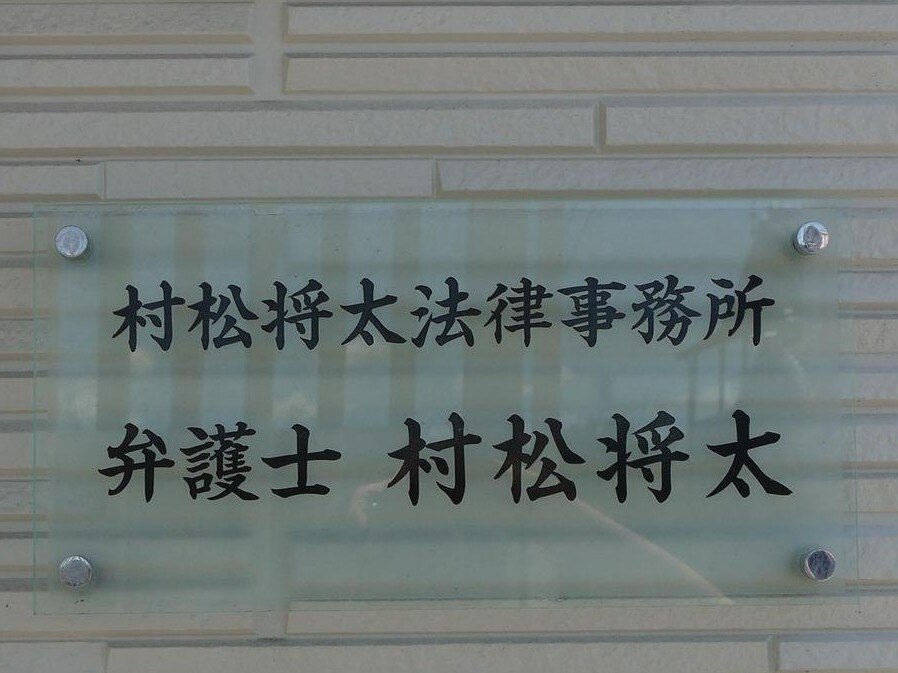 村松将太法律事務所
弁護士 村松将太